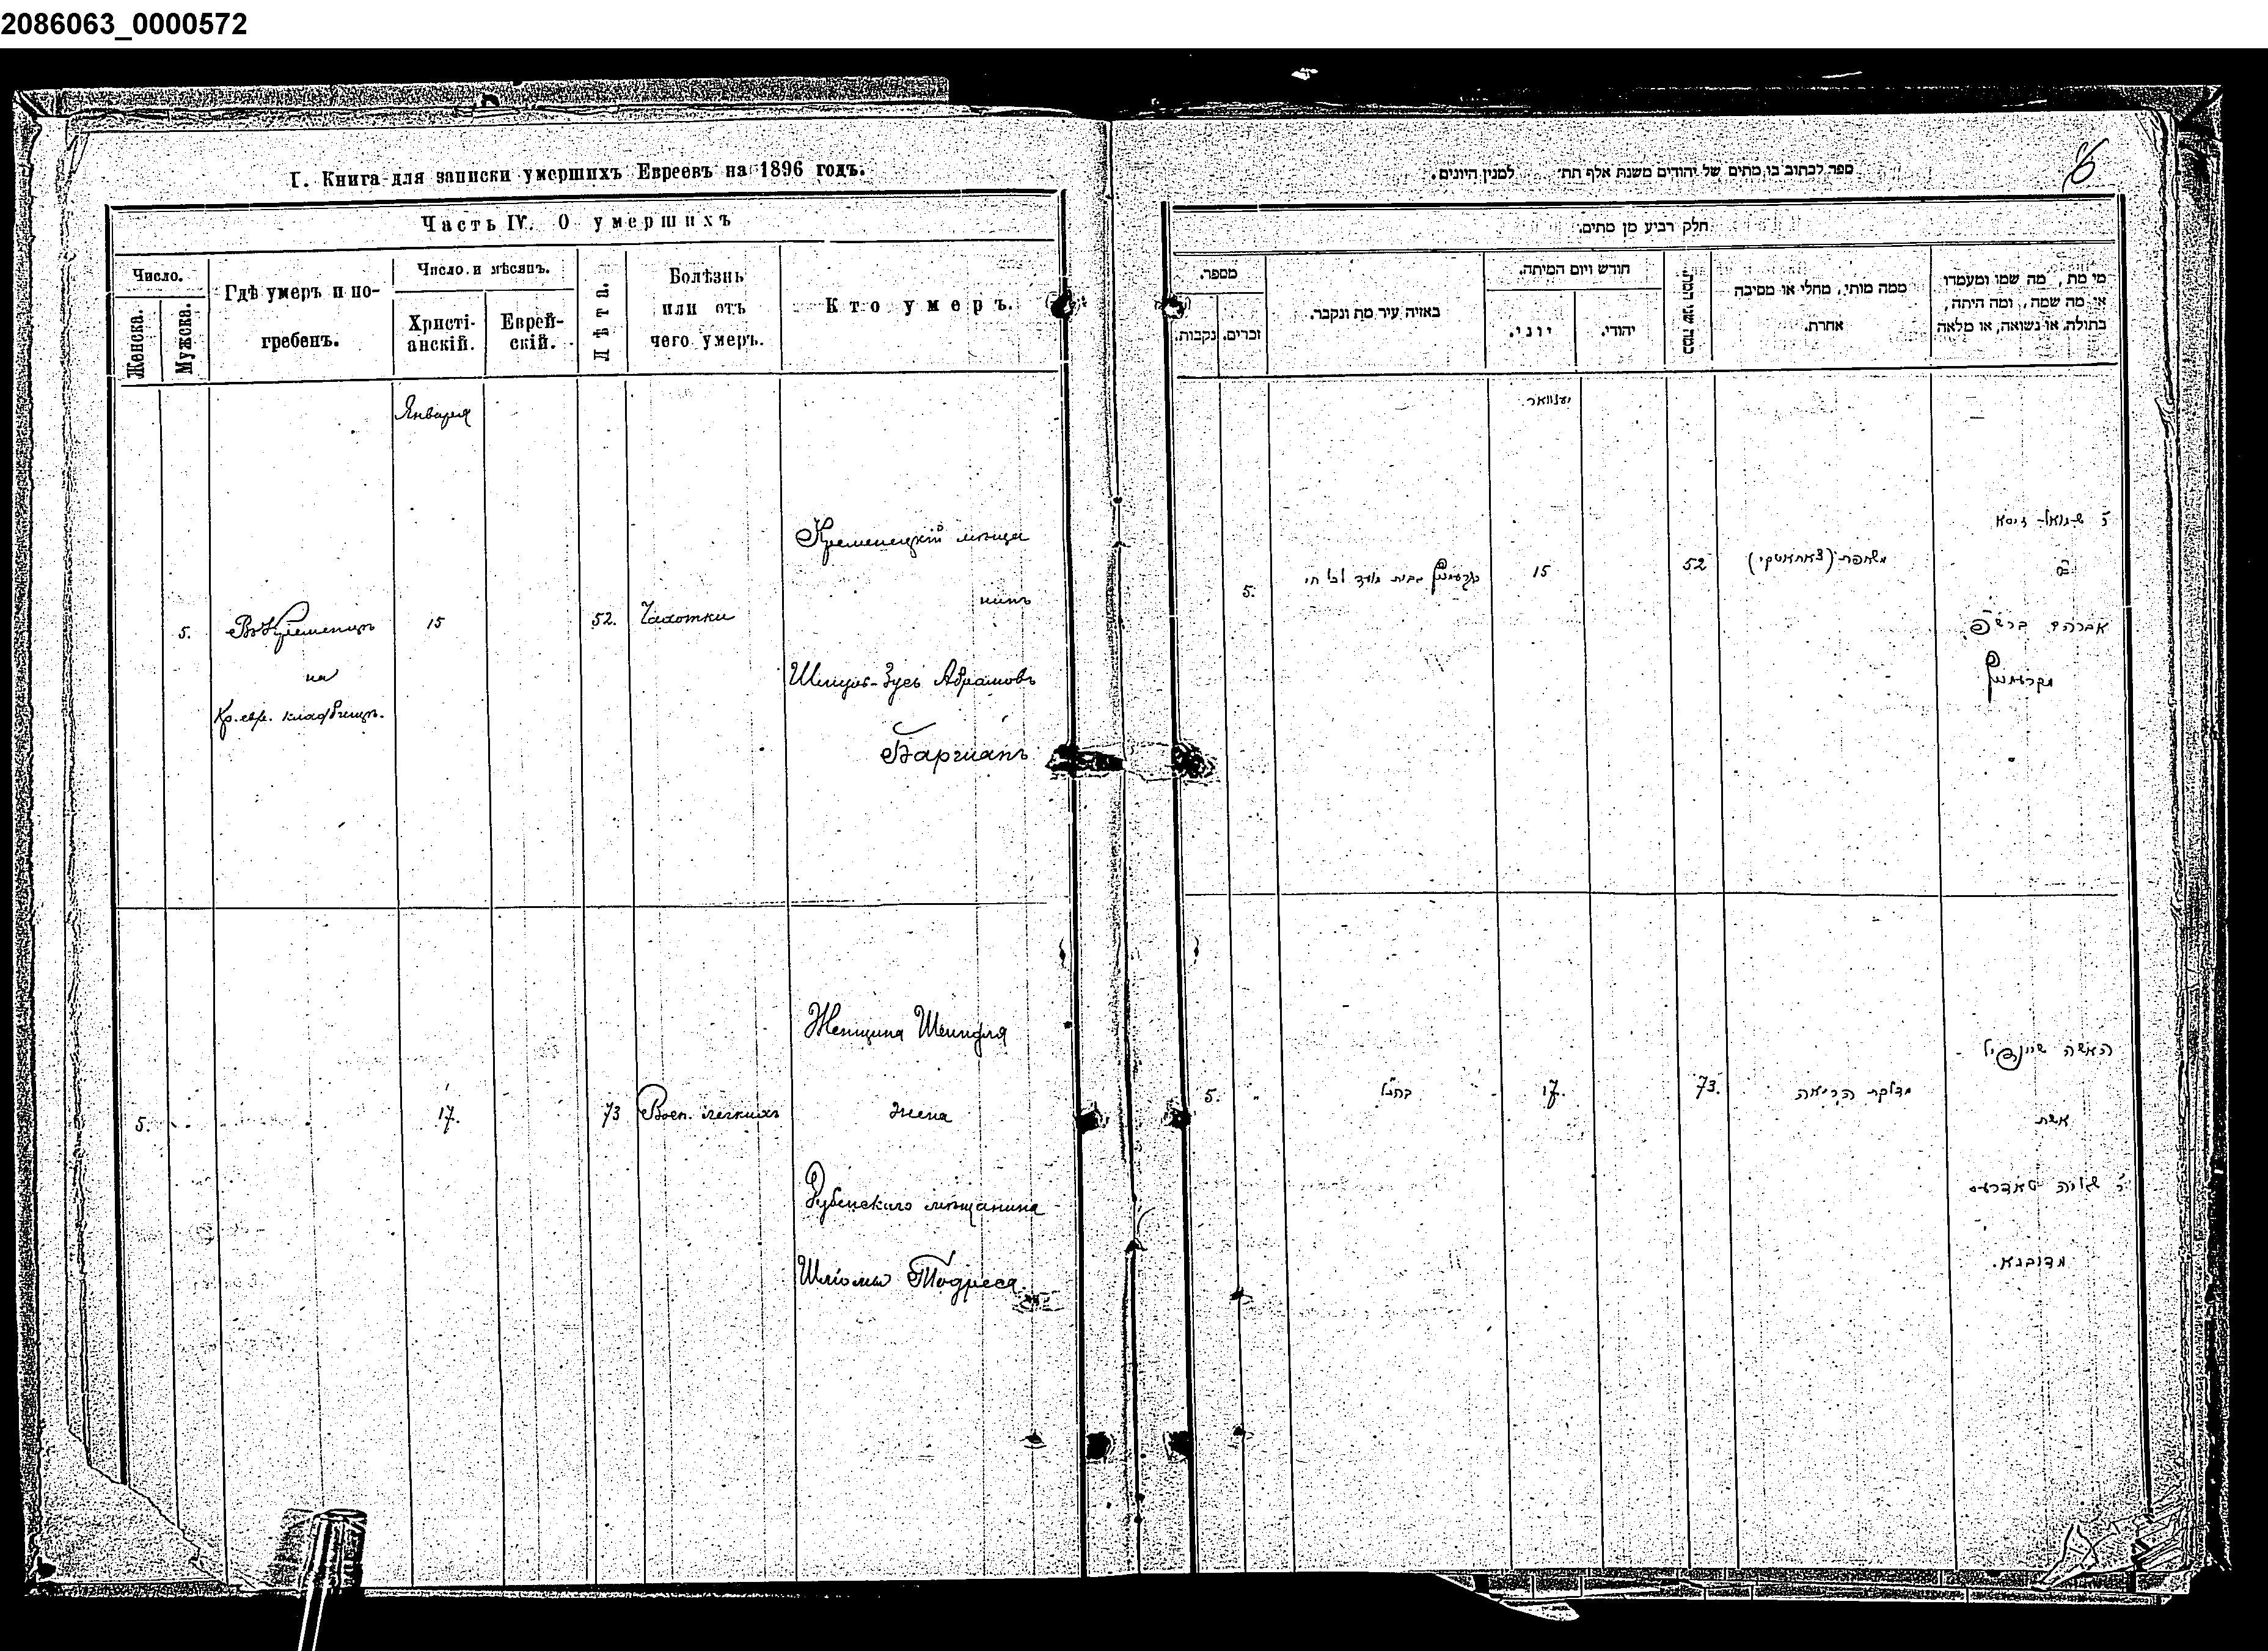 2086063_0000572
I. Книга для записки умершихъ Евреевъ на 1896 годъ.
Часть IV. О умершихъ
Число.
Женска.
Мужска.
Гдѣ умеръ и по-
гребенъ.
Число и мѣсяцъ.
Христі-
анскій.
Еврей-
скій.
Лѣта.
Болѣзнь
или отъ
чего умеръ.
Кто умеръ.
Января
5.
Въ Кременцѣ
на
Кр. евр. кладбищѣ.
15
52.
Чахотки
Кременецкій мѣща
нинъ
Шмуль-Зусь Абрамовъ
Баргманъ
5.
17.
73
Восп. легкихъ
Женщина Шейндля
жена
Дубенскаго мѣщанина
Шліомы Тодреса
ספר לכתוב בו מתים של יהודים משנת אלף תת״ למנין היונים.
חלק רביע מן מתים.
מספר.
נקבות.
זכרים.
באיזה עיר מת ונקבר.
חודש ויום המיתה.
יוני.
יהודי.
כמה שני המת.
ממה מותו, מחלי או מסיבה
אחרת.
מי מת, מה שמו ומעמדו
או מה שמה, ומה היתה,
בתולה או נשואה, או מלאה
יענוואר
5.
15
52
משחפת
אברהם
5.
בהנ״ל
17.
73.
מדלקת הריאה
האשה שיינדיל
אשת
מדובנא.